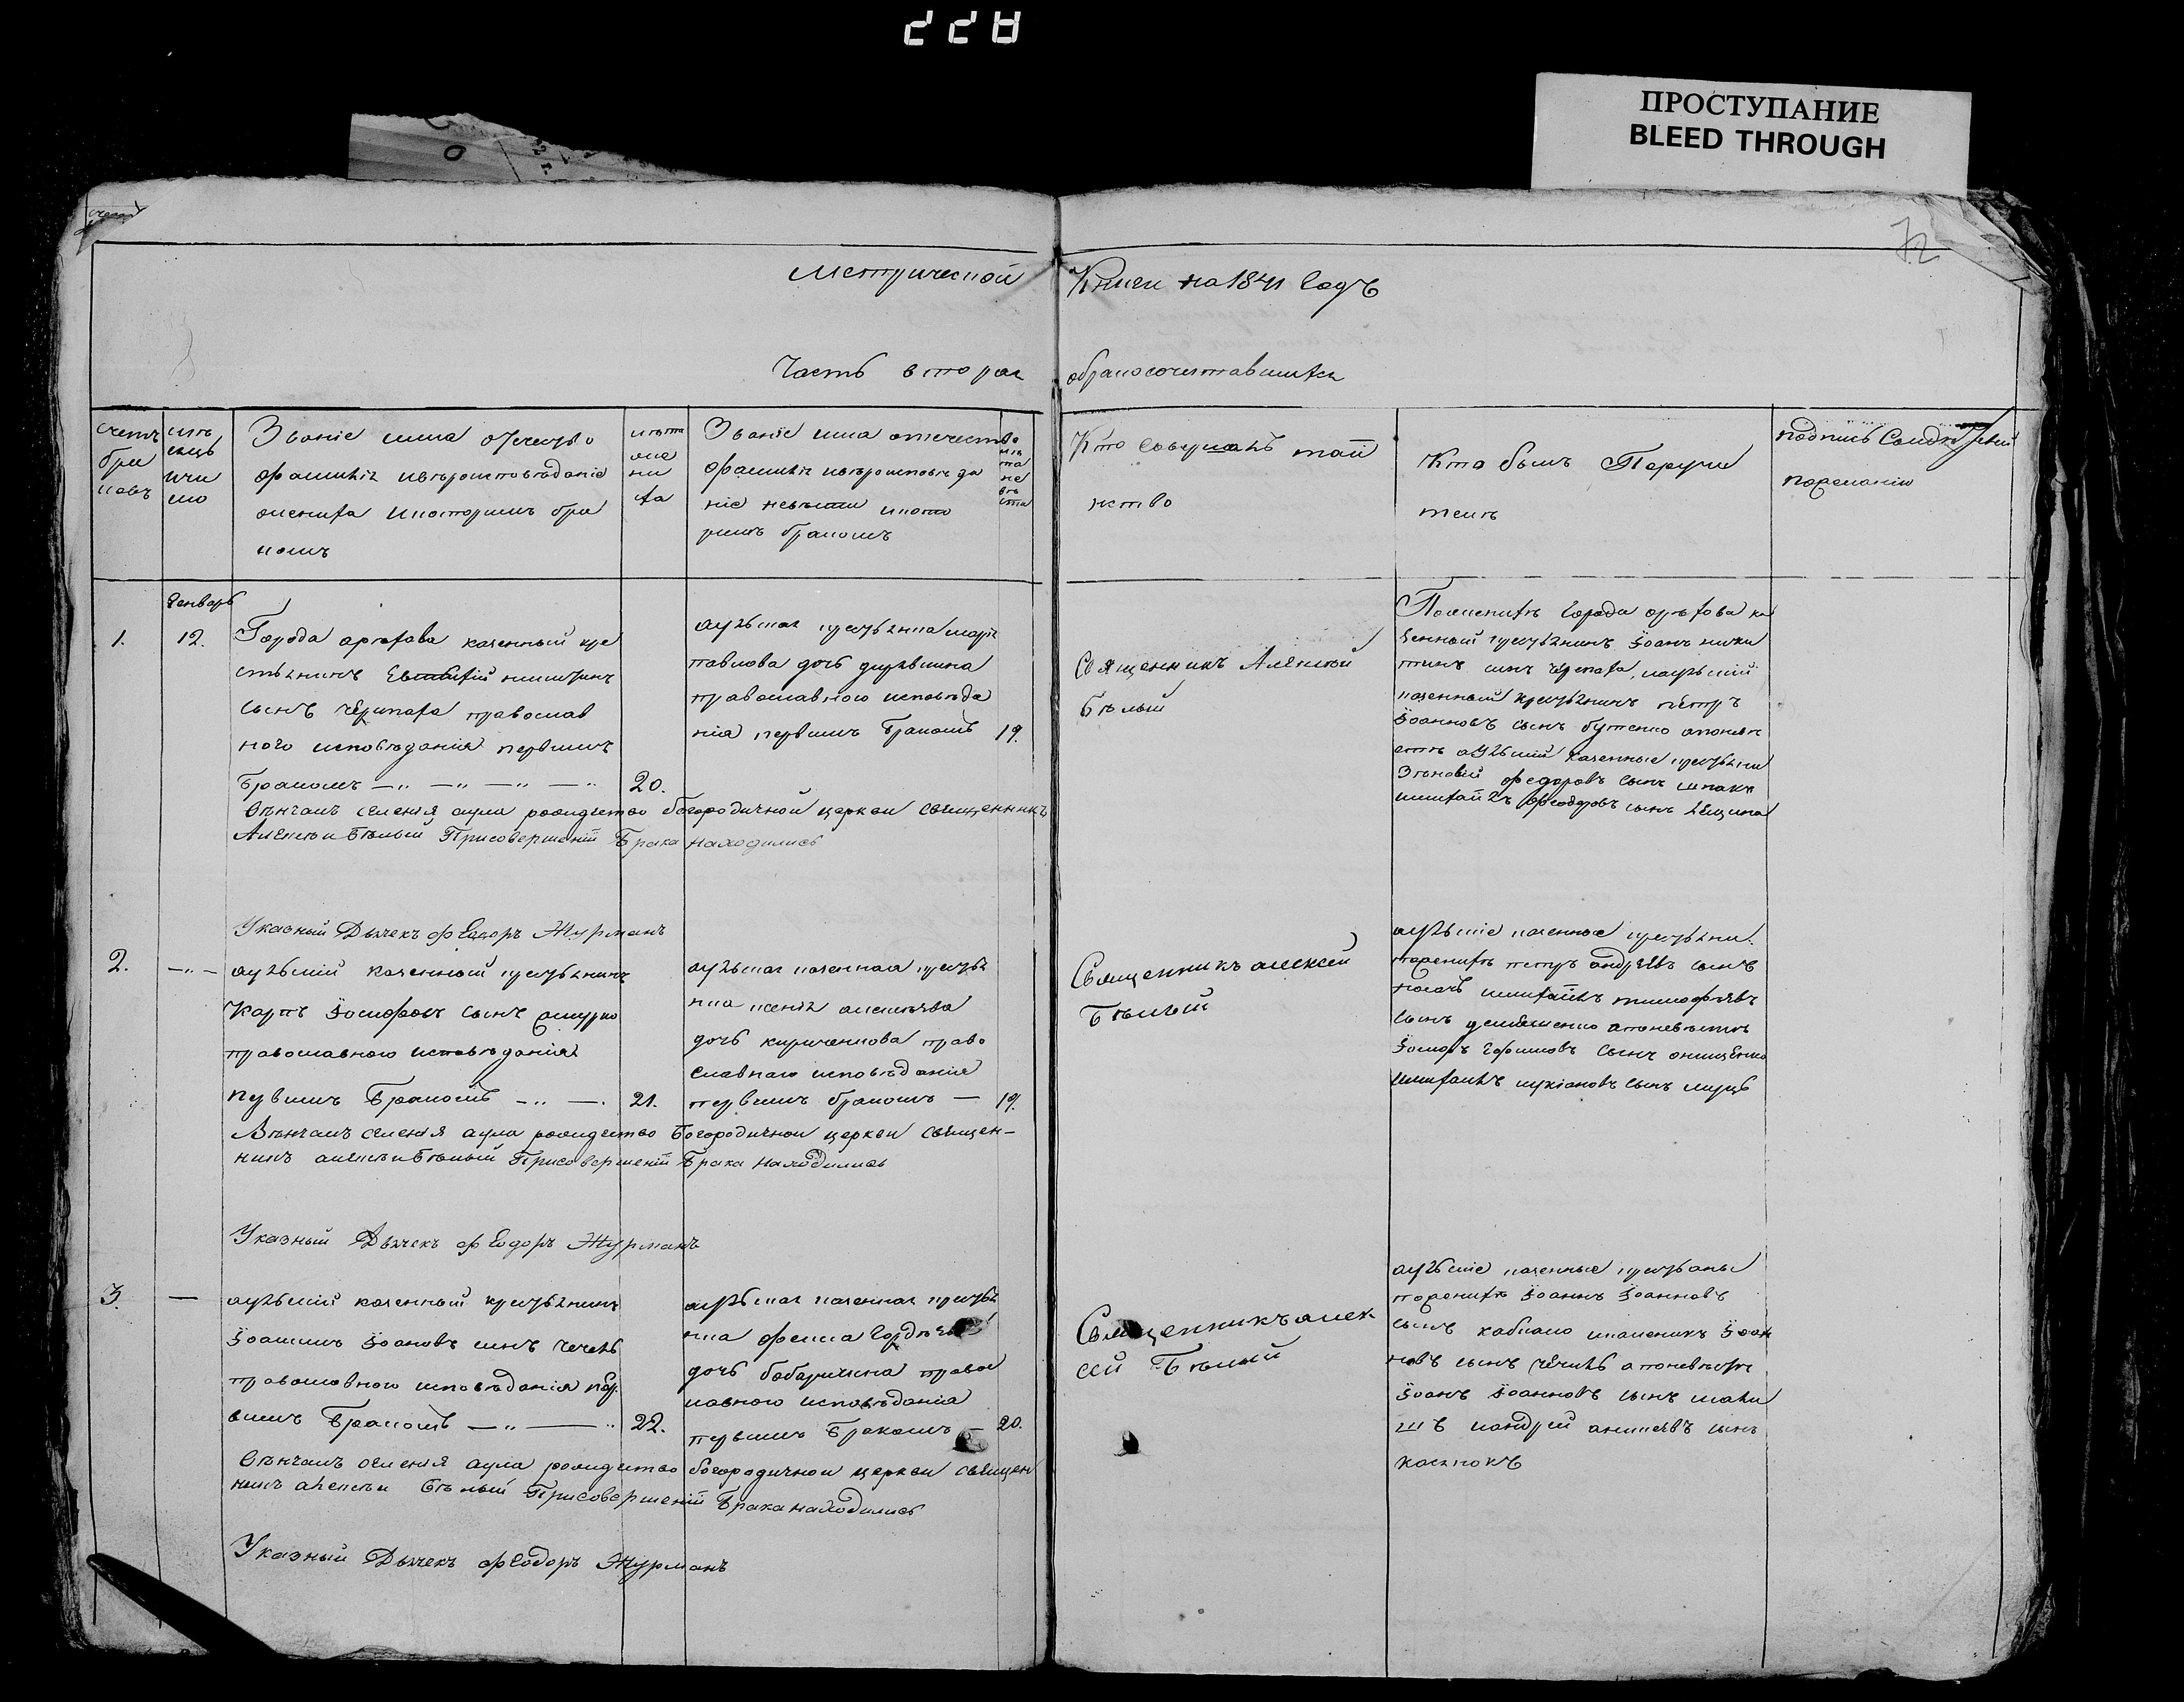 228
ПРОСТУПАНИЕ
BLEED THROUGH
72
Метрической Книги на 1841 Годъ
Часть вторая
о бракосочетавшихся
счетъ
бра
ковъ
мѣс
яцъ
ичи
сло
Званіе имя отчество
фамилія ивѣроисповѣданіе
жениха икоторимъ бра
комъ
лѣта
же
ни
ха
Званіе имя отечество
фамилія ивѣроисповѣда
ніе невѣсти икото
римъ бракомъ
лѣ
та
не
вѣ
сти
Кто совершалъ таи
нство
Кто былъ Поручи
тели
подпись Свидѣтелей
пожеланію
Генварь
1.
12.
Города орѣхова казенный кре
стьянинъ никитинъ
сынъ черепаха православ
ного исповѣданія первимъ
Бракомъ
20.
аульская крестьянка
павлова дочь
православного исповѣда
нія первимъ Бракомъ 19.
Священникъ Алексей
Бѣлый
Поженихѣ Города орѣхова ка
зенный крестьянинъ Іоанъ ники
тинъ синъ черепаха, иаульскій
казенный крестьянинъ петръ
Іоанновъ сынъ бутенко апоневѣ
стѣ аульскій казенные крестьяни
Зѣновій федоровъ сынъ шпакъ
имихаилъ феодоровъ сынъ
Вѣнчалъ селенія аула рождество богородичной церкви священникъ
Алексѣи Бѣлый Присовершеніи Брака находились
Указный Дьячекъ фЕодоръ Журманъ
2.
аульскій казенный крестьянинъ
Карпъ Іосифовъ сынъ
православного исповѣданія
первимъ Бракомъ
21.
аульская казенная крестья
нка ксенія алексѣева
дочь кириченкова право
славнаго исповѣданія
первимъ бракомъ — 19.
Священникъ алексей
Бѣлый
аульскіе казенные крестьяни
поженихѣ петръ андрѣевъ сынъ
имихаилъ тимофѣевъ
сынъ апоневѣстѣ
Іосифъ Ефимовъ сынъ онищенко
имихаилъ лукіановъ сынъ
Вѣнчалъ селенія аула рождество Богородичной церкви священ-
никъ алексѣи Бѣлый Присовершеніи Брака находились
Указный Дьячекъ фЕодоръ Журманъ
3.
аульскій казенный крестьянинъ
Іоакимъ Іоановъ синъ чечель
православного исповѣданія пер
вимъ Бракомъ
22.
аульская казенная крестья
нка Гордѣева
дочь правос
лавного исповѣданія
первимъ Бракомъ — 20.
Священникъ алек
сей Бѣлый
аульскіе казенные крестьяны
поженихѣ Іоаннъ Іоанновъ
сынъ Іоан
новъ сынъ апоневѣстѣ
Іоанъ Іоанновъ сынъ
иандрей сынъ
Вѣнчалъ селенія аула рождество богородичной церкви священ
никъ алексѣи Бѣлый Присовершеніи Брака находились
Указный Дьячекъ фЕодоръ Журманъ